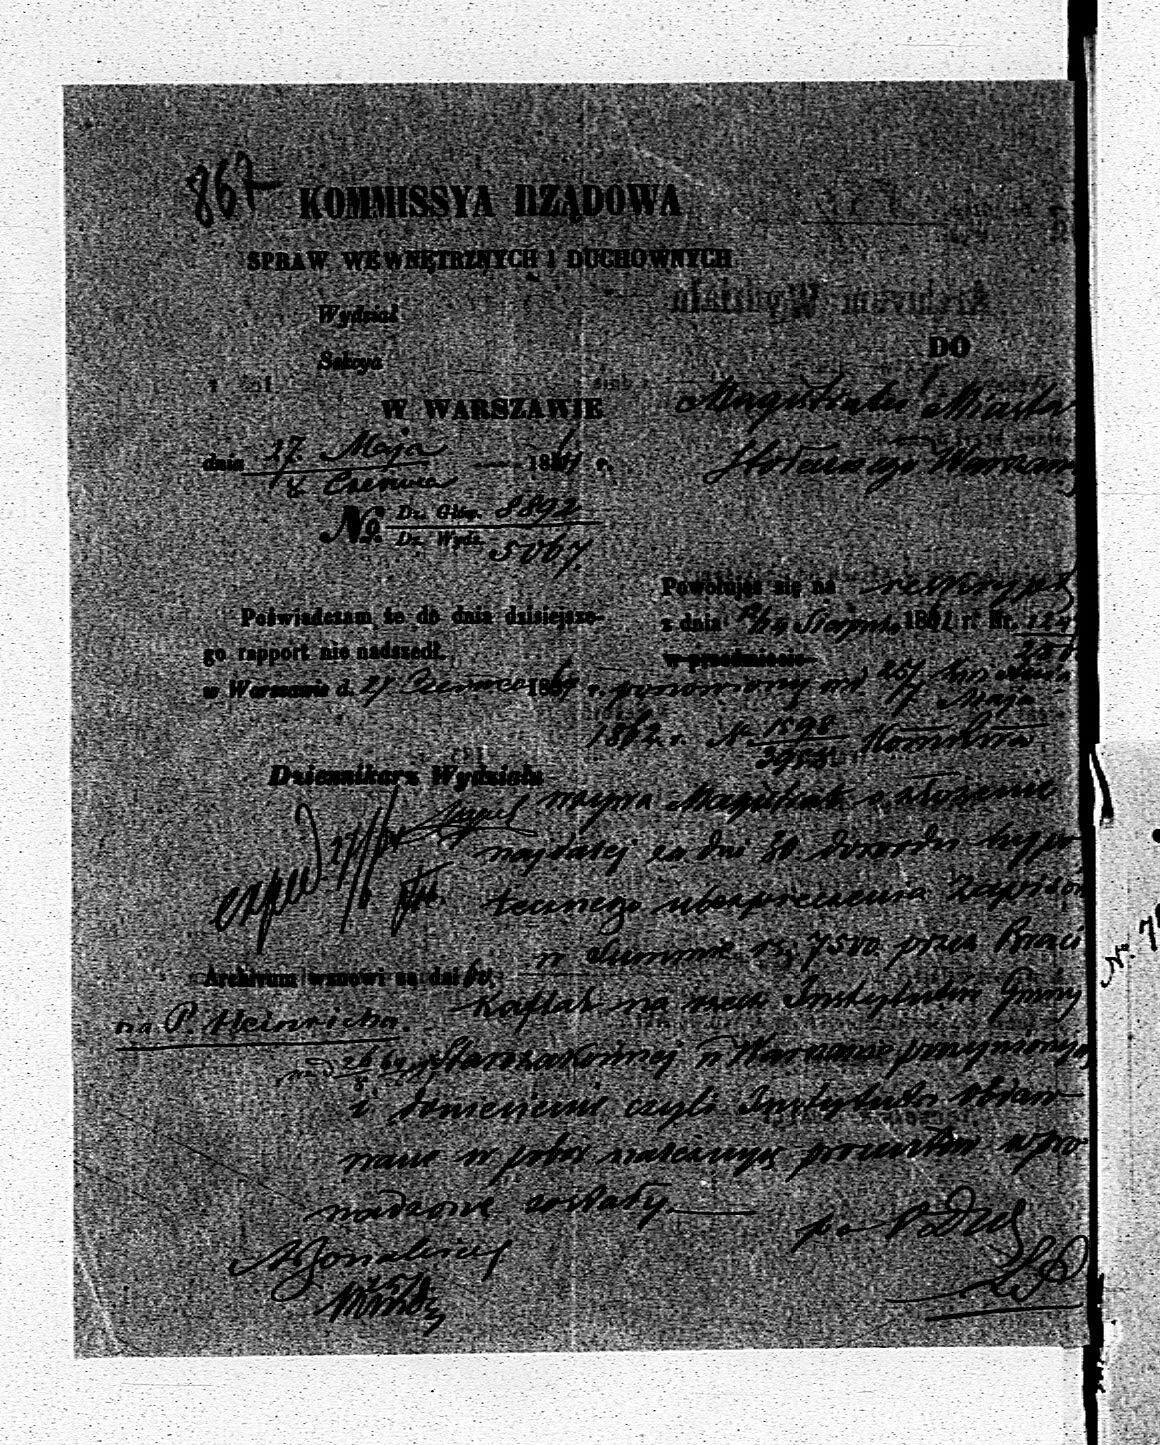 867
KOMMISSYA RZĄDOWA
SPRAW WEWNĘTRZNYCH I DUCHOWNYCH
Wydział
Sekcya
W WARSZAWIE
dnia 27 Maja 1864 r.
8 Czerwca
No. Dz. Głów. 8892
Dz. Wydz. 5067.
Poświadczam że do dnia dzisiejsze-
go rapport nie nadszedł.
w Warszawie d. 27 Czerwca 1864 r.
Dziennikarz Wydziału
Archivum wznowi za dni 60.
na P. Heinricha.
DO
Magistratu Miasta
Stołecznego Warszawy
Powołując się na reskrypt
z dnia Sierpnia 1861 r. Nr.
w przedmiocie
ponowiony pod. 25/7 Kwietnia
Maja
1862 r. Nr 1598 Kommissa
wzywa Magistrat o złożenie
najdalej za dni 30. dowodu hypo-
tecznego ubezpieczenia zapisów
w Summie rs. 7500. przez Braci
na rzecz Instytutów Gminy
Starozakonnej w Warszawie poczynionych
i doniesienie czyli Instytuta
w pobór należnych procentów wpro-
wadzone zostały.